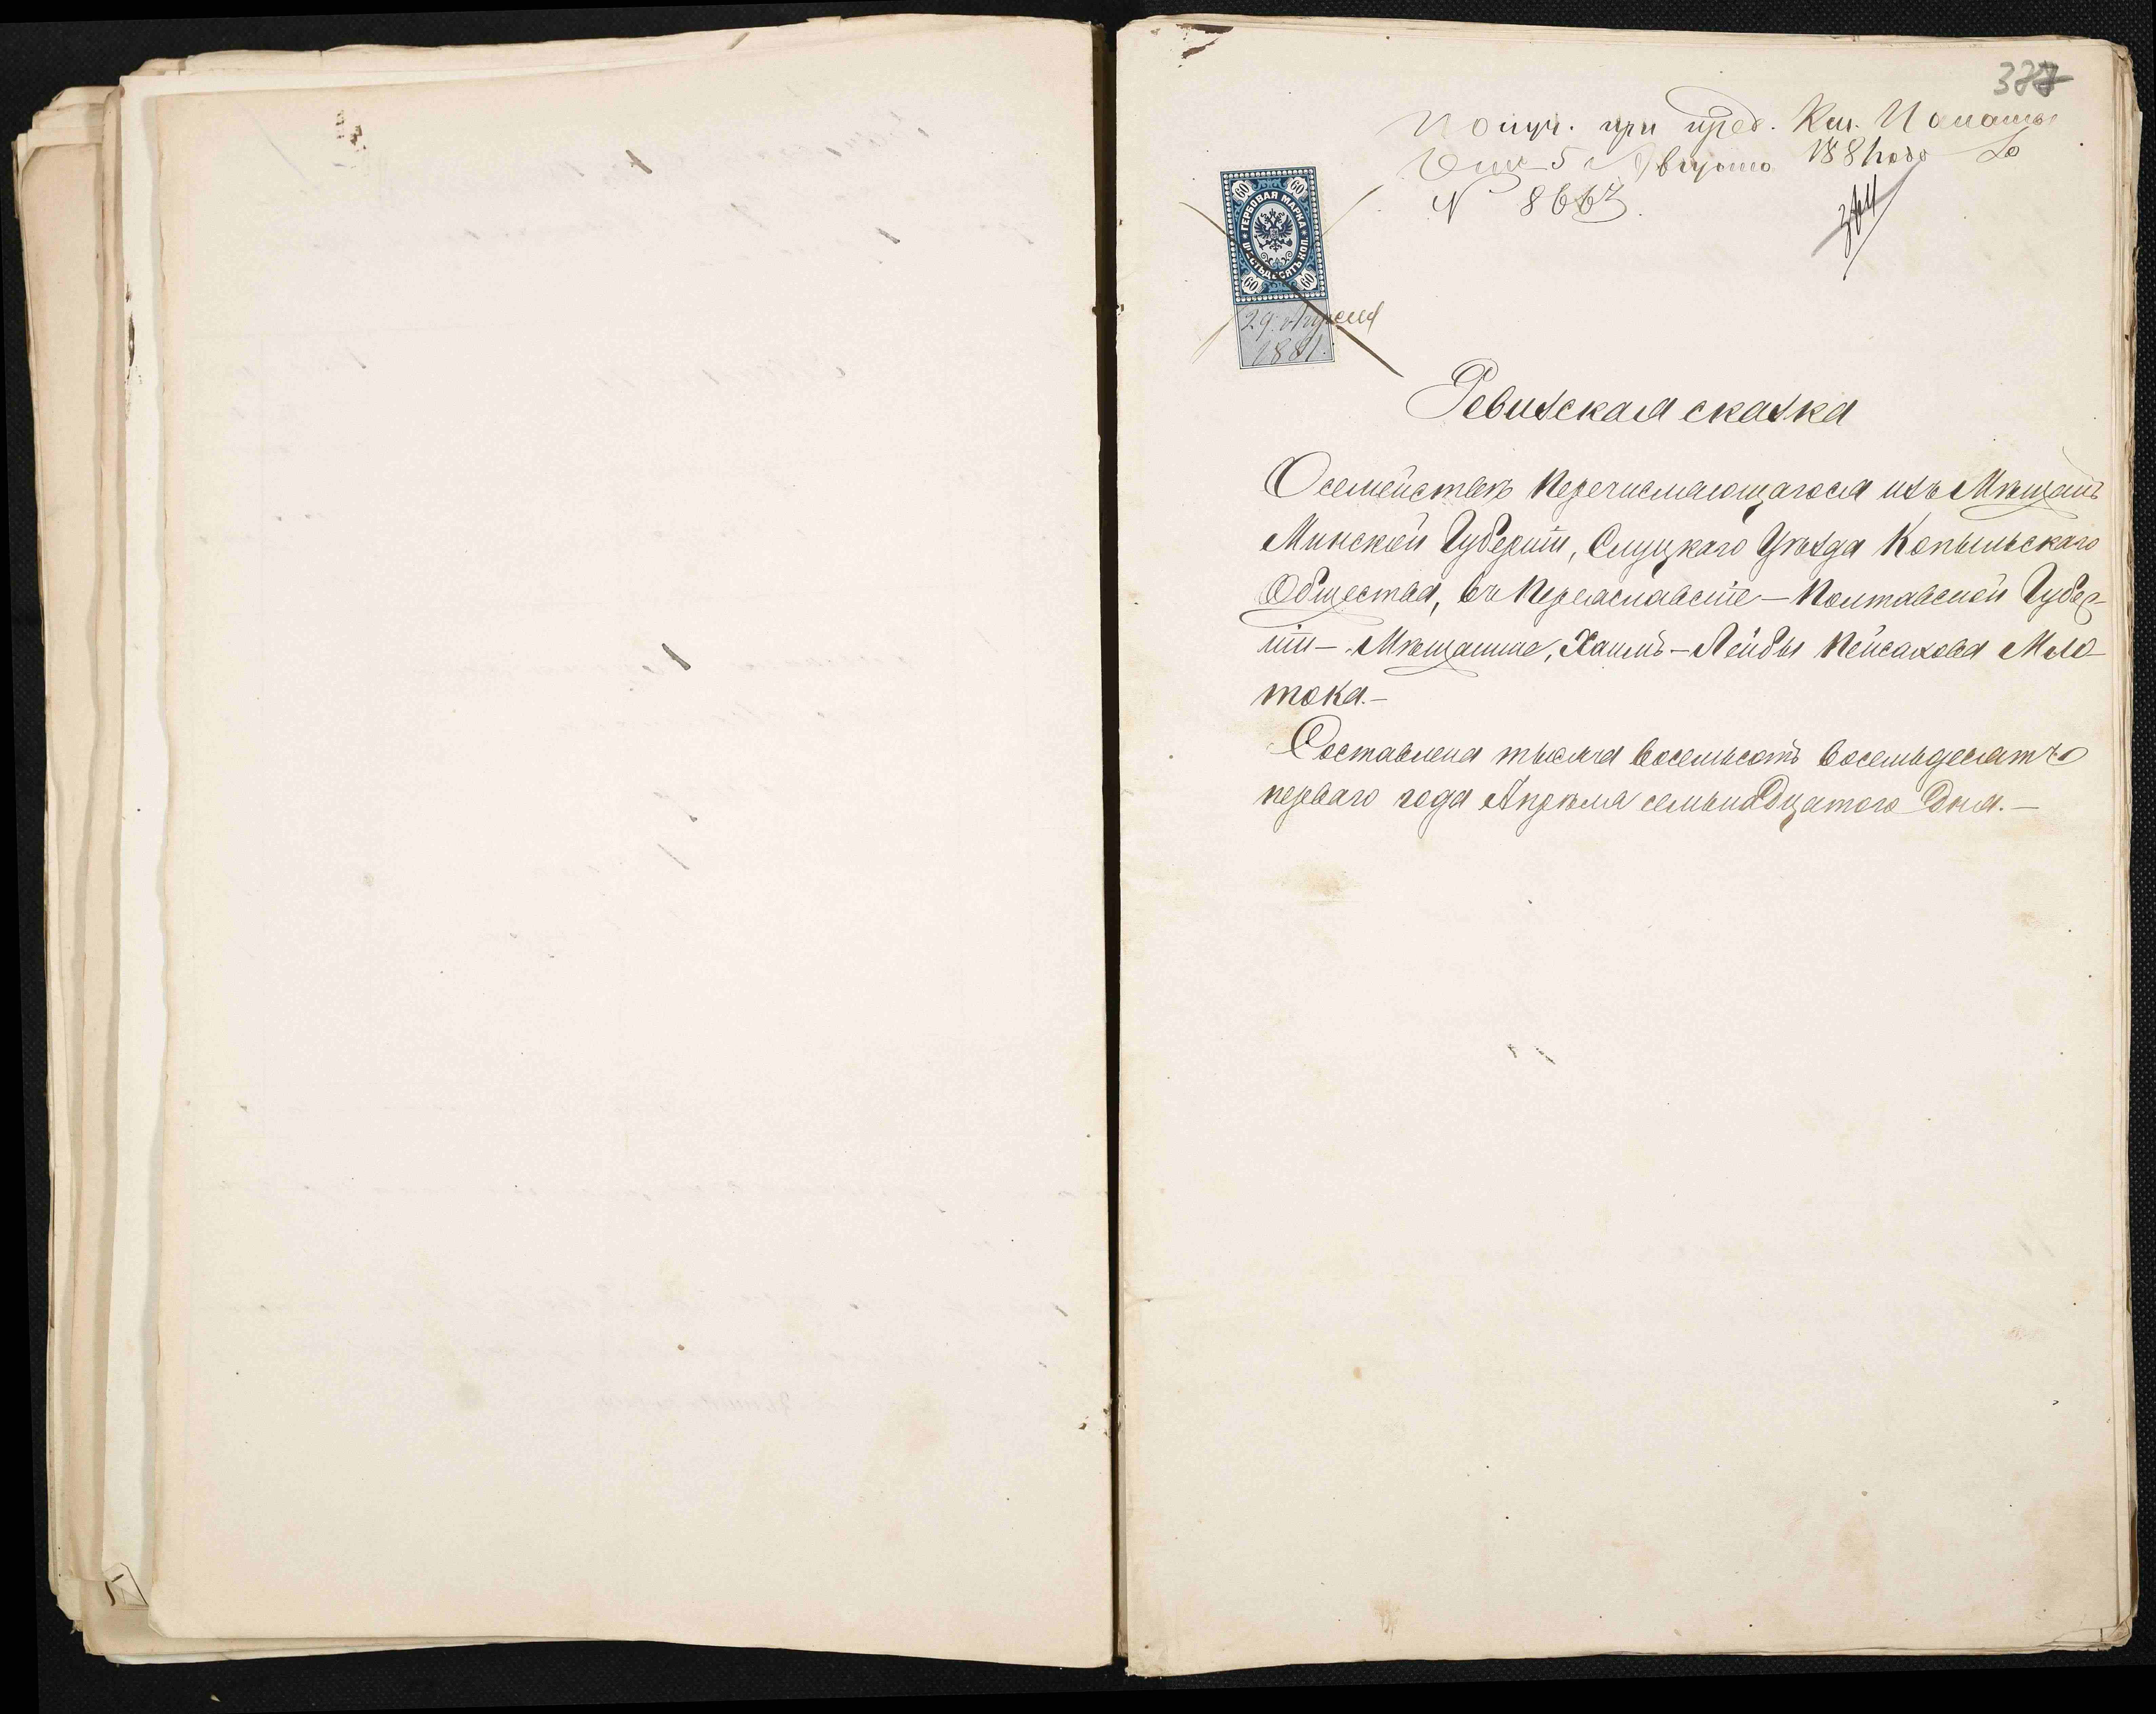 Получ. при пред. Каз. Палаты
отъ 5 Августа 1881 года за
N 8663.
60 60
ГЕРБОВАЯ МАРКА
ШЕСТЬДЕСЯТЪ КОП.
60 60
29 Апреля
1881.
Ревизская сказка
О семействѣ перечисляющагося изъ Мѣщанъ
Минской Губерніи, Слуцкаго Уѣзда Копыльскаго
Общества, въ Переяславскіе – Полтавской Губер-
ніи – Мѣщанине, Хаимъ – Лейбы Пейсахова Мло-
тока. –
Составлена тысяча восемьсотъ восемьдесятъ
перваго года Апрѣля семьнадцатого дня. –